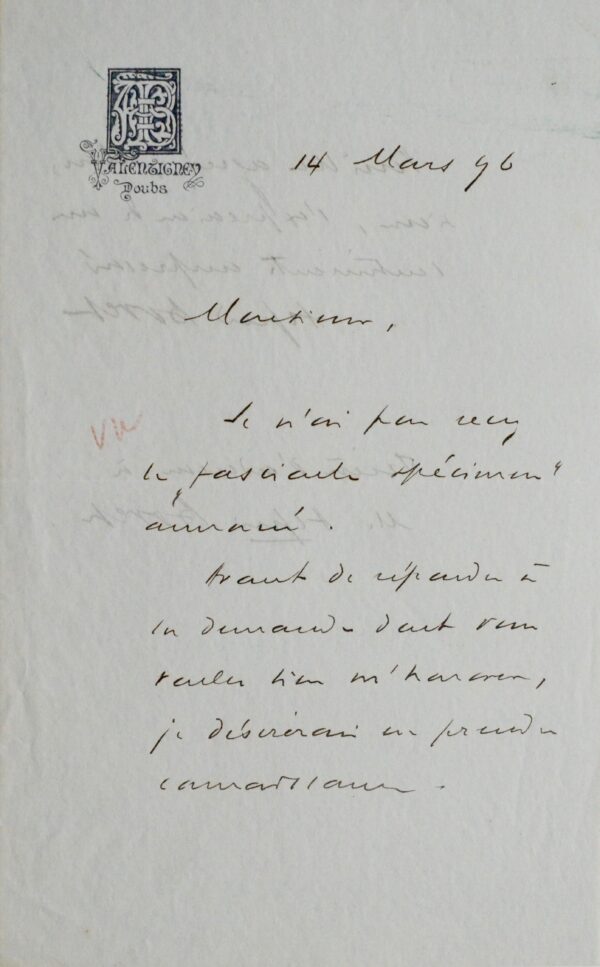 VALENTIGNEY
Doubs
14 Mars 96
Monsieur,
Je n'ai pas reçu
le "fascicule spécimen"
annoncé.
Avant de répondre à
la demande dont vous
voulez bien m'honorer,
je désirerais en prendre
connaissance.
vu